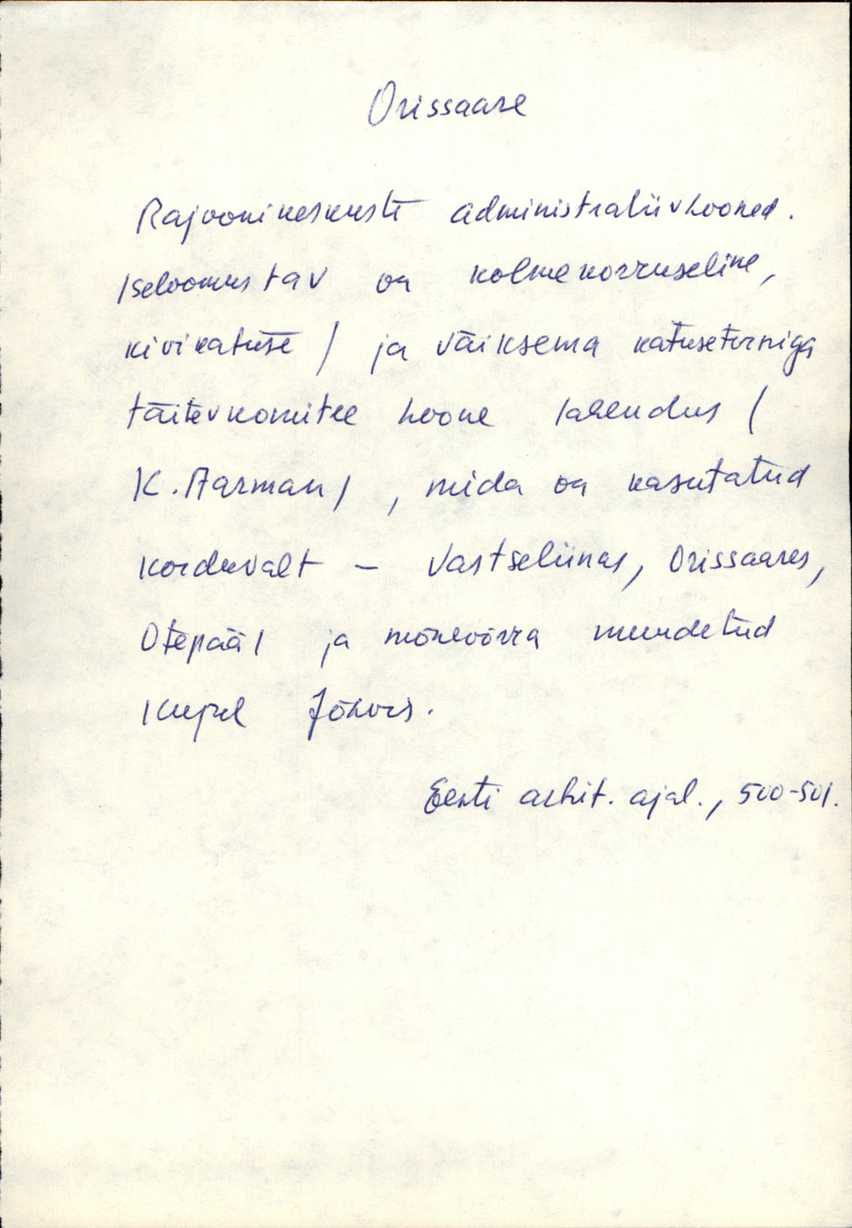 Orissaare
Rajoonikeskuste administratiivhooned.
Iseloomustav on kolmekorruseline,
kivikatuse / ja väiksema katusetorniga
täitevkomitee hoone lahendus /
K. Tarman / , mida on kasutatud
korduvalt – Vastseliinas, Orissaares,
Otepääl ja mõnevõrra muudetud
kujul Jõhvis.
Eesti arhit. ajal., 500-501.